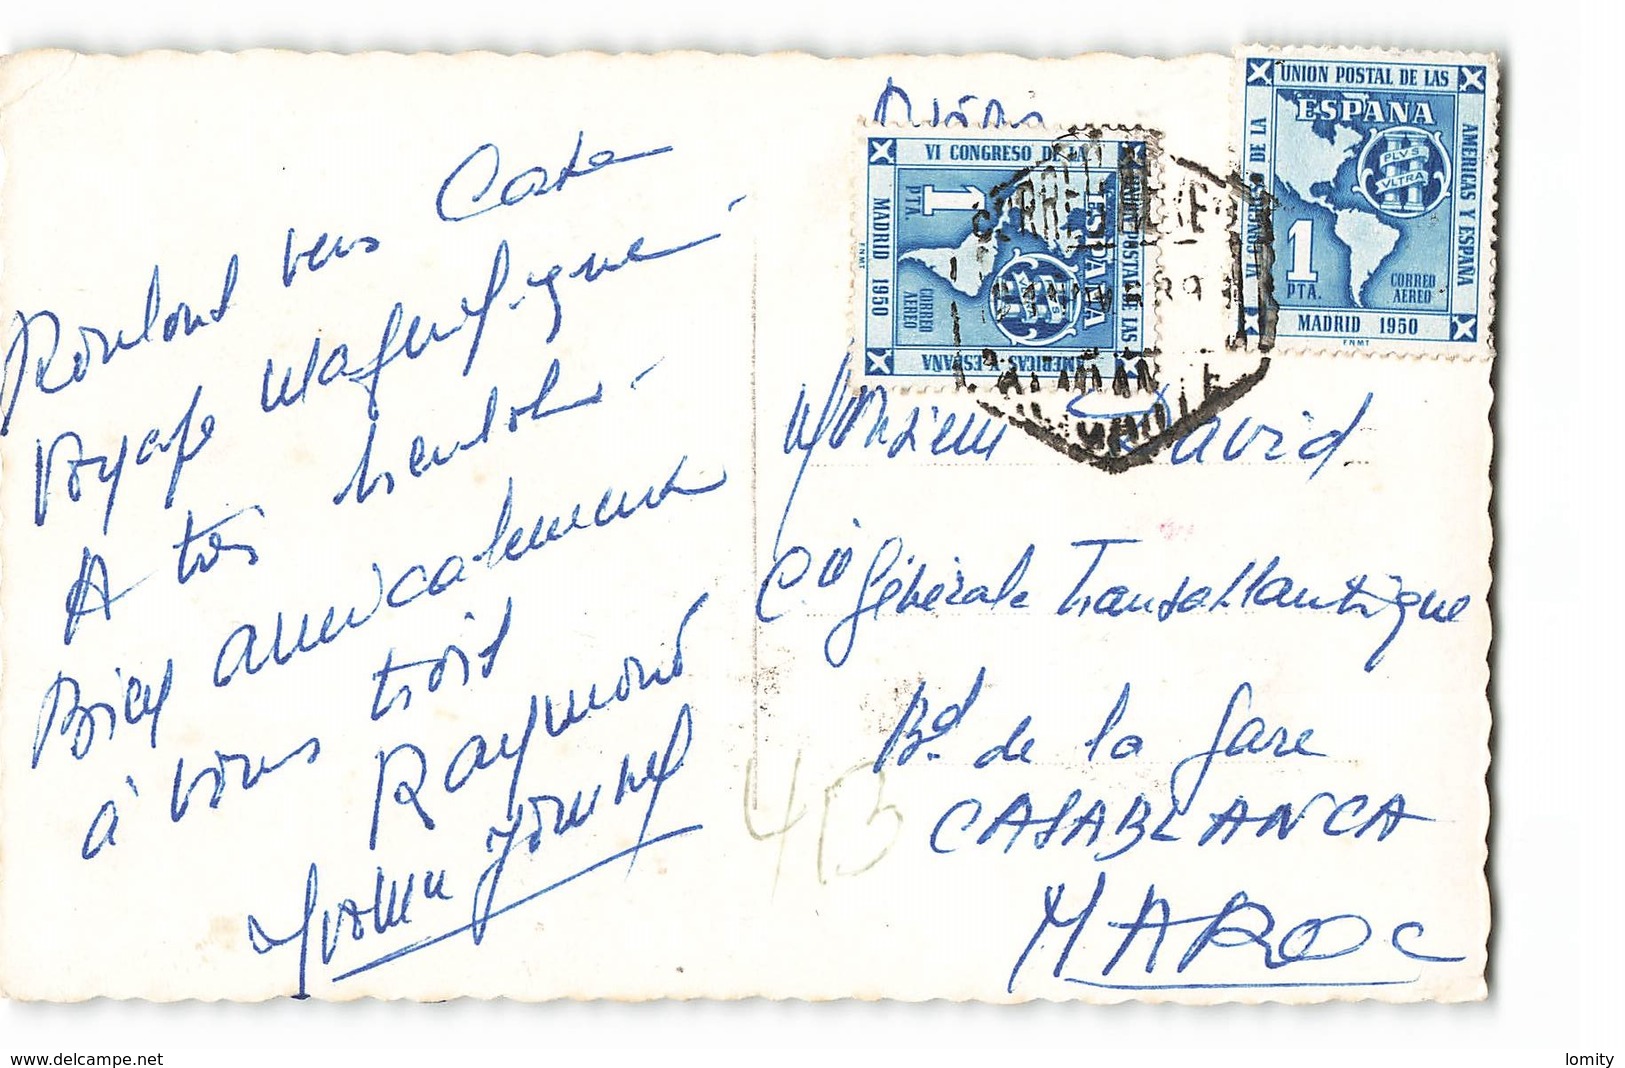 Roulons vers Casa
Voyage Magnifique
A très bientôt
Bien amicalement
à vous trois
Raymond
Yvonne Yonnel
Monsieur David
Cie Générale Transatlantique
Bd. de la Gare
CASABLANCA
MAROC
413
VI CONGRESO DE LA
UNION POSTAL DE LAS
AMERICAS Y ESPAÑA
MADRID 1950
ESPAÑA
PLVS
VLTRA
1
PTA.
CORREO
AEREO
FNMT
UNION POSTAL DE LAS
AMERICAS Y ESPAÑA
VI CONGRESO DE LA
ESPAÑA
PLVS
VLTRA
1
PTA.
CORREO
AEREO
MADRID 1950
FNMT
CORREO AEREO
ALICANTE
www.delcampe.net
lomity